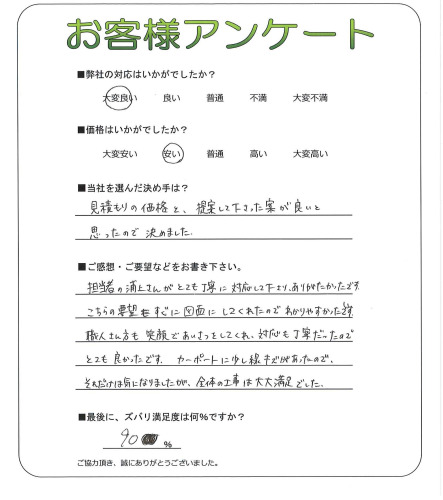 お客様アンケート
■弊社の対応はいかがでしたか？
大変良い 良い 普通 不満 大変不満
■価格はいかがでしたか？
大変安い 安い 普通 高い 大変高い
■当社を選んだ決め手は？
見積もりの価格と、提案して下さった案が良いと
思ったので決めました。
■ご感想・ご要望などをお書き下さい。
担当者の浦上さんがとても丁寧に対応して下さり、ありがたかったです。
こちらの要望もすぐに図面にしてくれたのでわかりやすかったです。
職人さん方も笑顔であいさつをしてくれ、対応も丁寧だったので
とても良かったです。カーポートに少し線キズがあったので、
それだけは気になりましたが、全体の工事は大大満足でした。
■最後に、ズバリ満足度は何%ですか？
90 %
ご協力頂き、誠にありがとうございました。